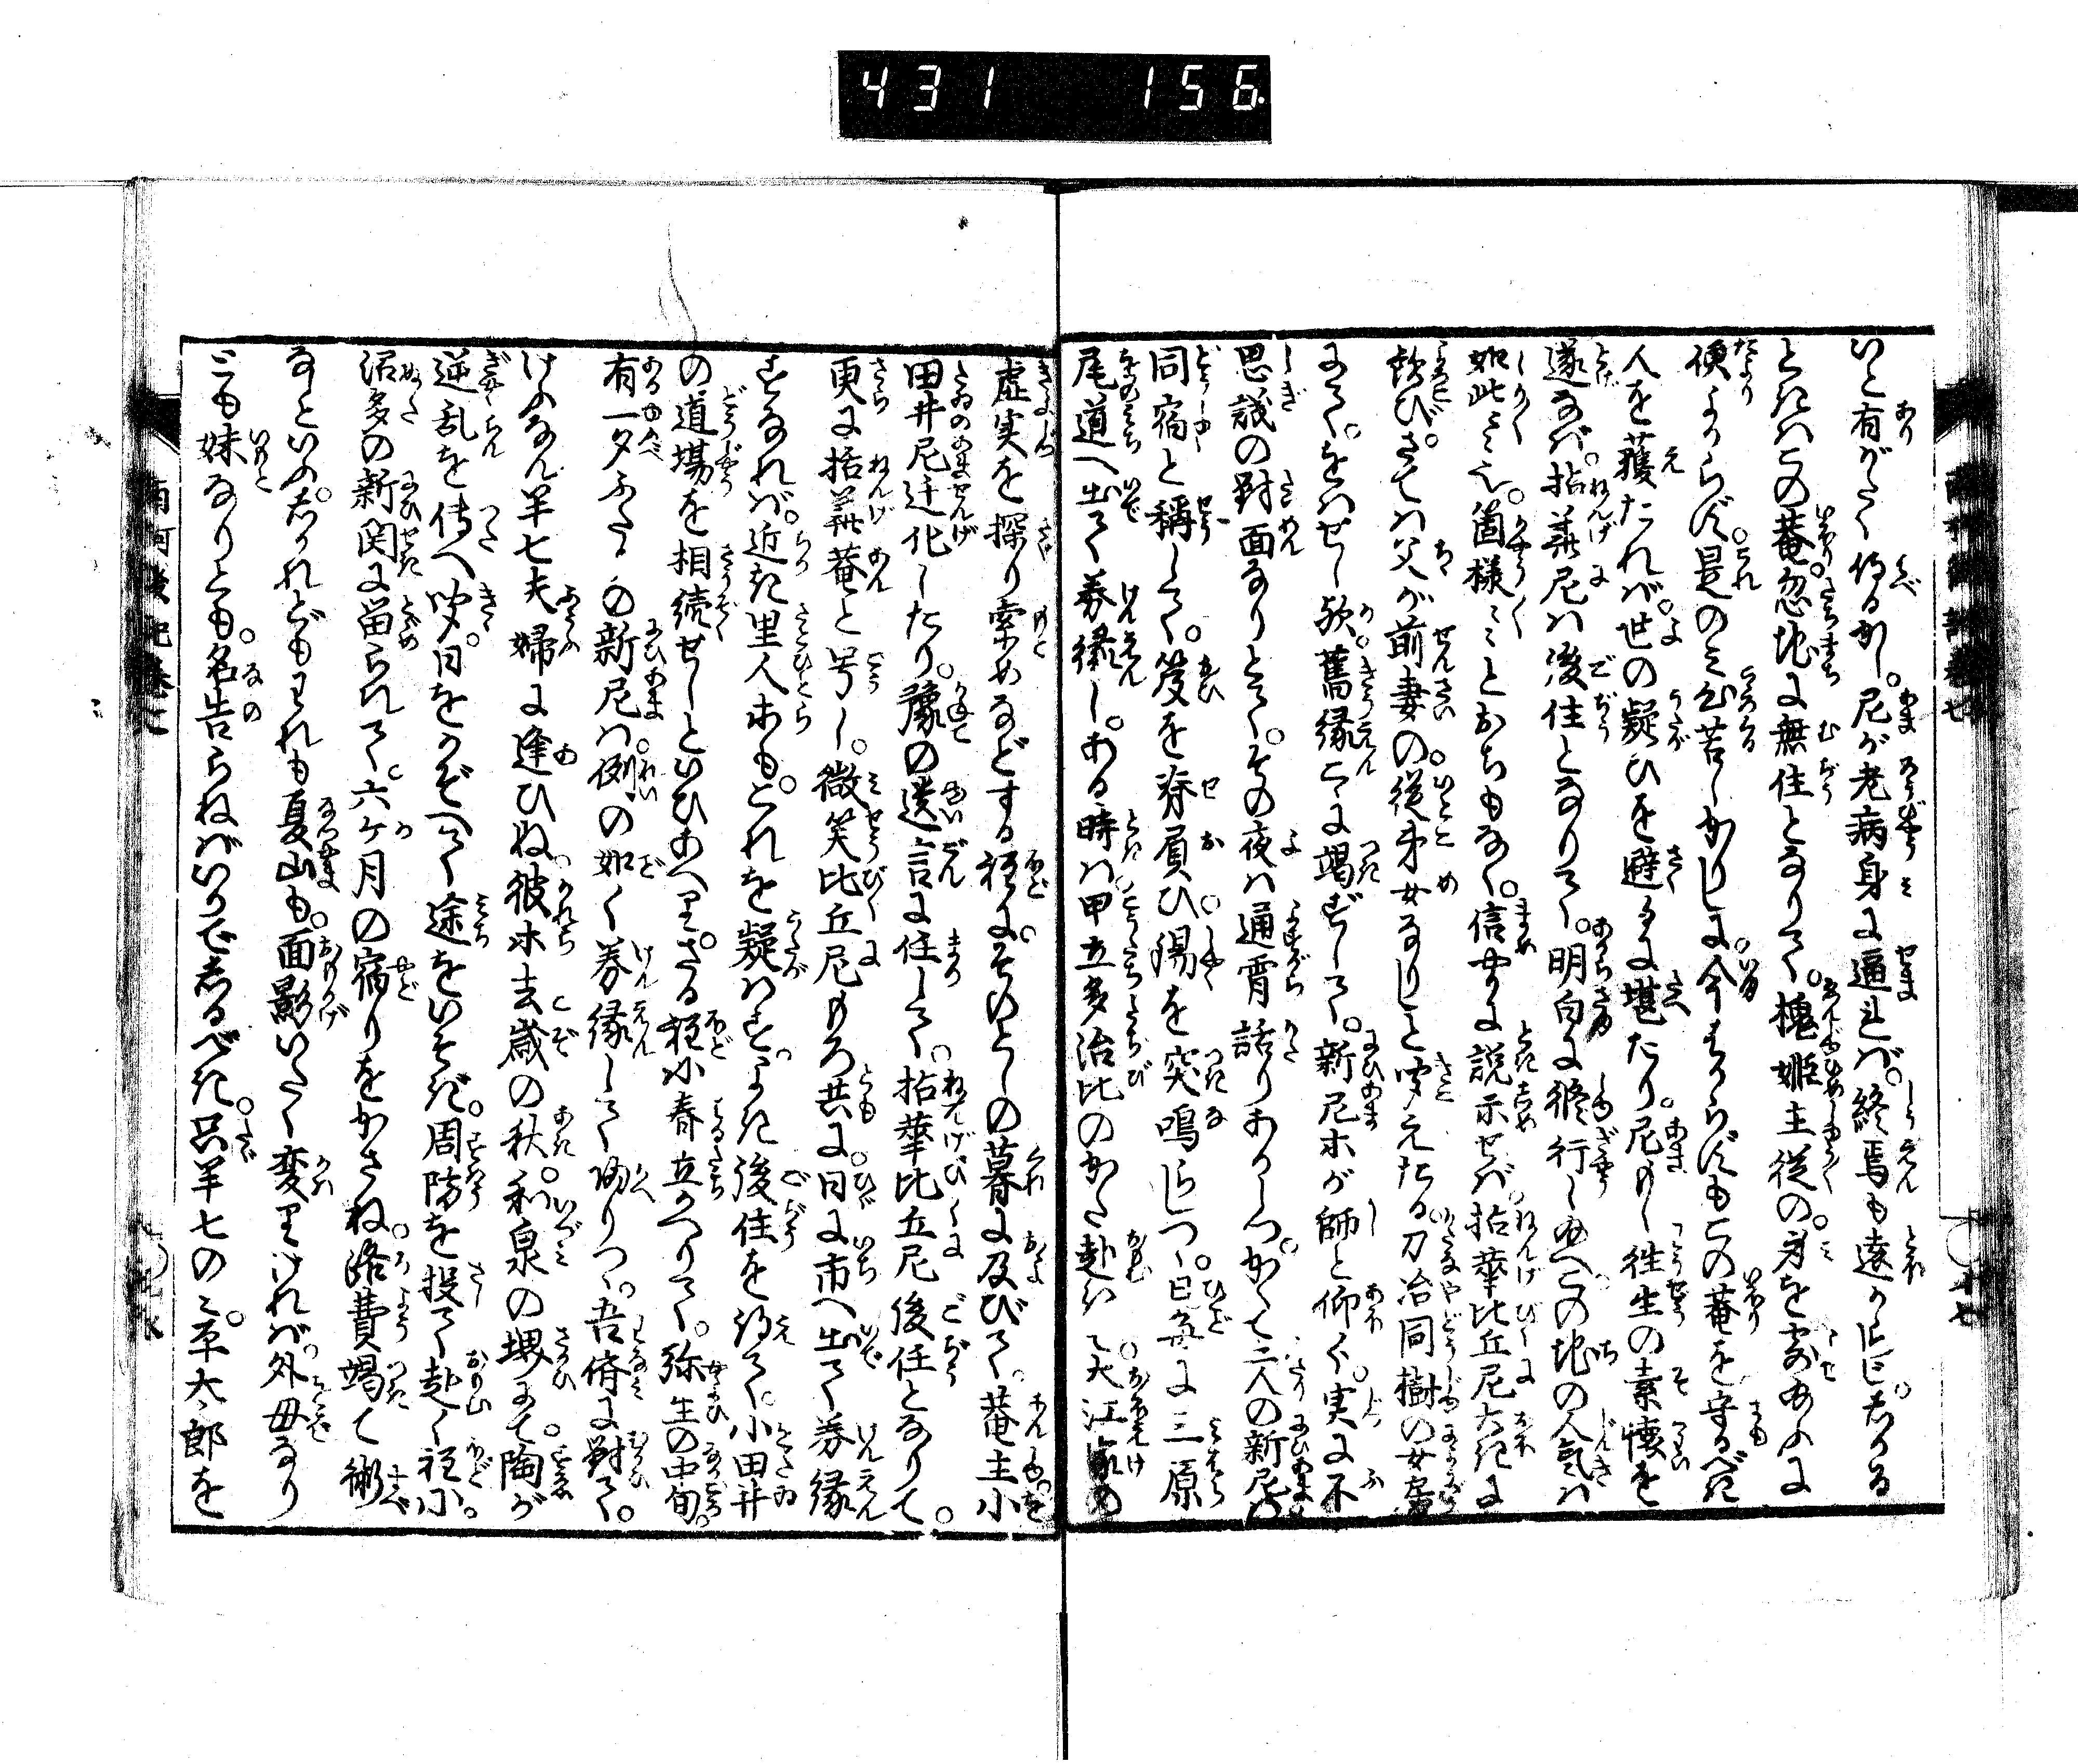 431 156
いと有がたく侍るかし。尼が老病身に逼れば。終焉も遠からじ。しかる
ときはこの菴。忽地に無住となりて。槐姫主従の。身を寄給ふに
便よからず。是のみ心苦しかりしに。今はからずもこの菴を守るべき
人を獲たれば。世の疑ひを避るに堪たり。尼もし往生の素懐を
遂なば。拈華尼は後住となりて。明白に修行し給へ。この地の人気は
如此々々。箇様々々とおちもなく。信やかに説示せば。拈華比丘尼大きに
歓び。さては父が前妻の。従弟女なりしと聞えたる。刀冶同樹の女房
にて。をはせし歟。旧縁こゝに竭ずして。新尼等が師と仰ぐ。実に不
思議の対面なりとて。その夜は通宵話りあかしつ。かくて二人の新尼は
同宿と称して。笈を脊負ひ。錫を突鳴らしつゝ。日毎に三原
尾道へ出て券縁し。ある時は。甲立多治比のかたに赴きて。大江家の
虚実を探り索めなどする程に。そのとしの暮に及びて。菴主小
田井尼遷化したり。豫の遺言に任して。拈華比丘尼後住となりて。
更に拈華菴と号し。微笑比丘尼もろ共に。日に市へ出て券縁
すなれば。近き里人等も。これを疑はず。よき後住を得て。小田井
の道場を相続せしといひあへり。さる程に春立かへりて。弥生の中旬。
有一夕ふたりの新尼は。例の如く券縁して帰りつゝ。吾儕に対て。
けふなん半七夫婦に逢ひぬ。彼等去歳の秋。和泉の堺にて。陶が
逆乱を伝へ聞。日をかぞへて途をいそぎ。周防を投て赴く程に。
沼多の新関に留られて。六ヶ月の宿りをかさね。路費竭て術
なしといふ。しかれどもわれも夏山も。面影いたく変りければ。外母なり
とも妹なりとも。名告らねばいかでしるべき。只半七の三。平太郎を